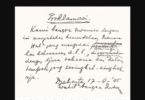 Proklamasi
Kami bangsa Indonesia dengan
ini menjatakan kemerdekaan Indonesia.
Hal² jang mengenai
d.l.l.,
dengan tjara saksama dan dalam
tempoh jang sesingkat-singkatnja.
Djakarta 17-8-'05
Wakil² bangsa Indon